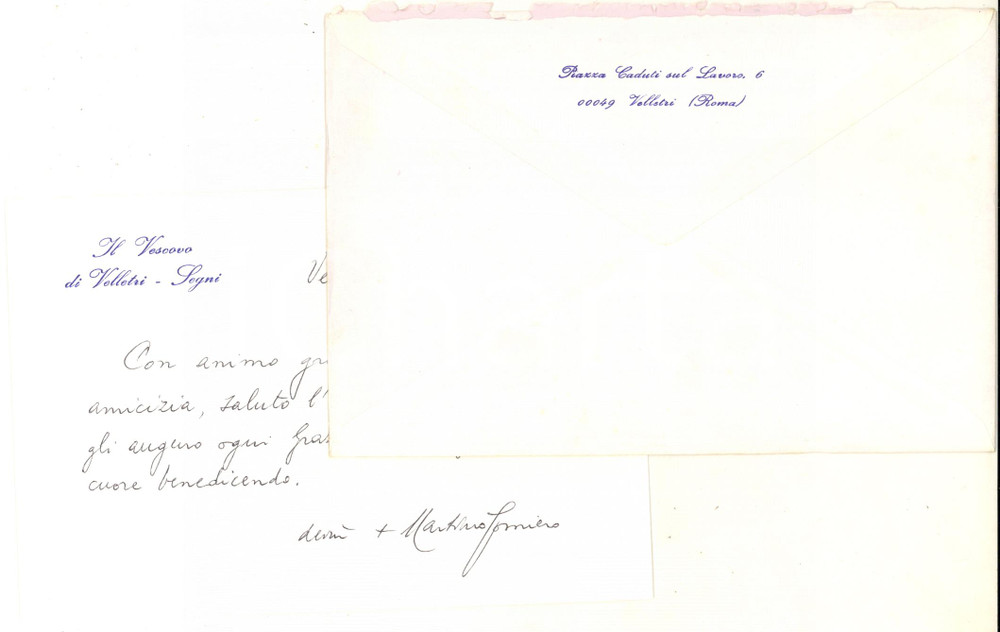 Piazza Caduti sul Lavoro, 6
00049 Velletri (Roma)
Il Vescovo
di Velletri - Segni
Ve
Con animo gra
amicizia, saluto l'
gli auguro ogni
cuore benedicendo.
+ Martino Gomiero